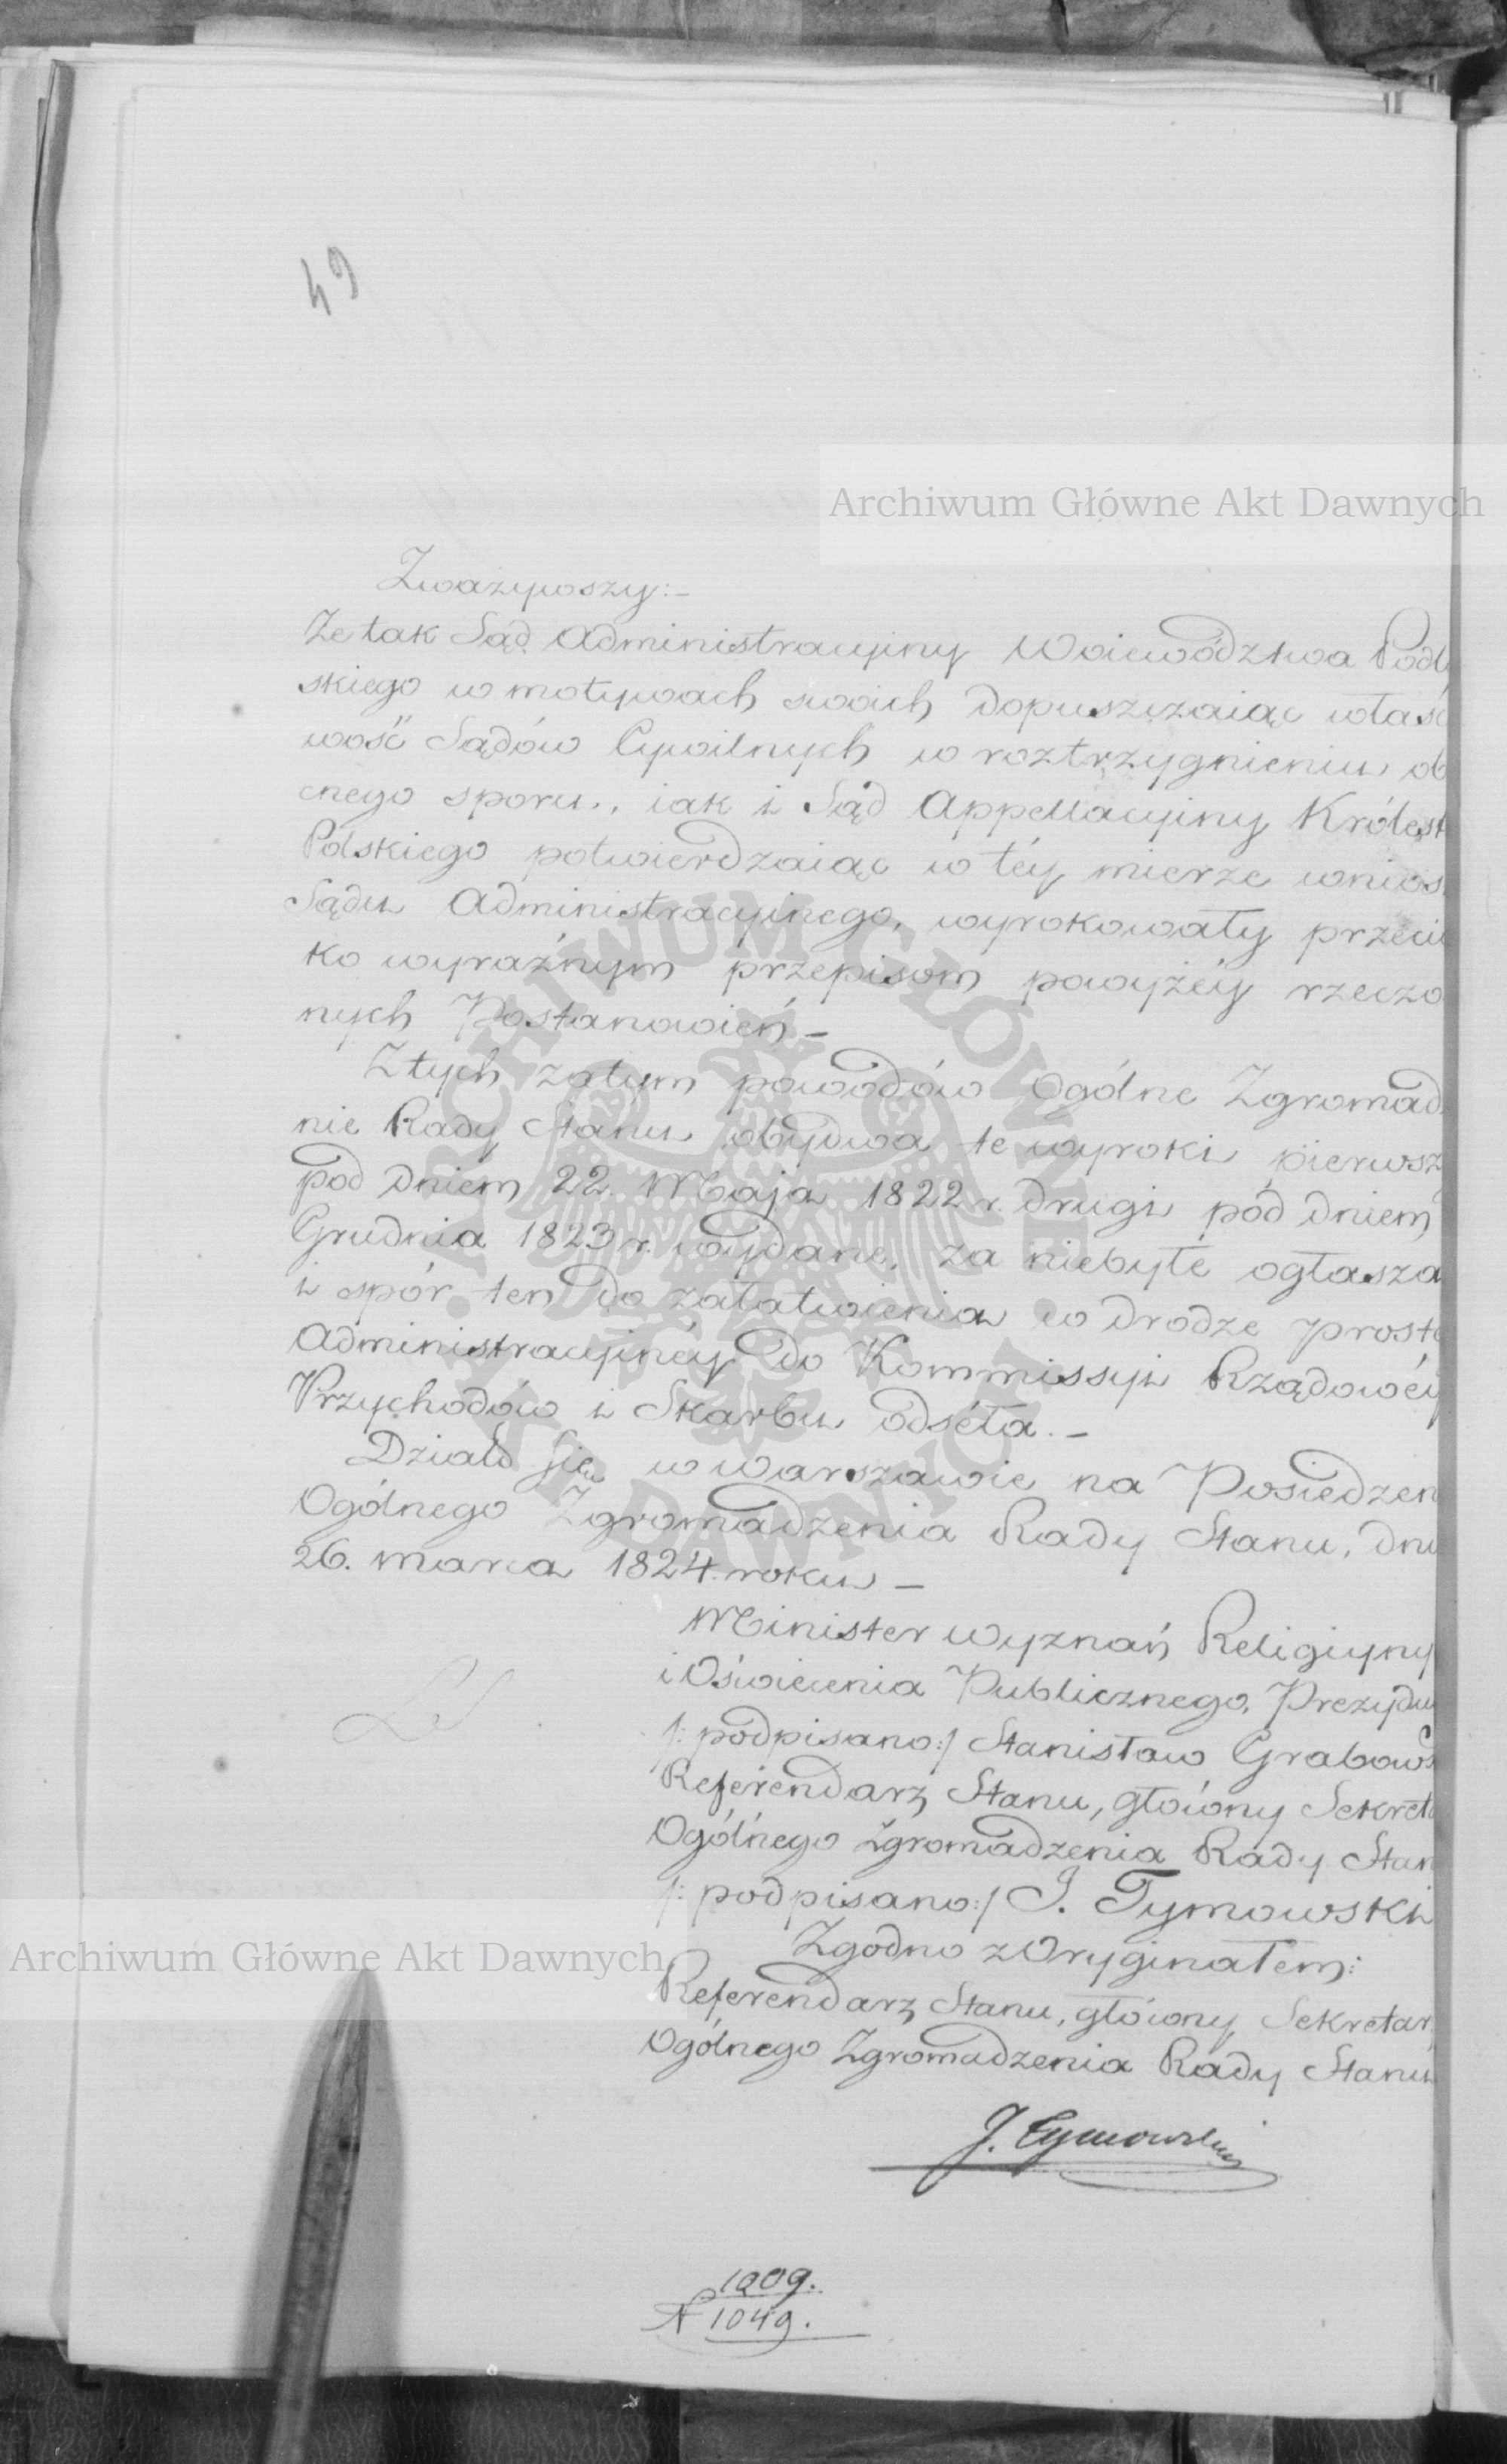 49
Archiwum Główne Akt Dawnych
Zważywszy:-
Że tak Sąd Administracyiny Woiewództwa Podl
skiego w motywach swoich dopuszczaiąc własc
wość Sądów Cywilnych w roztrzygnieniu ob
cnego sporu, iak i Sąd Appellacyiny Królest
Polskiego potwierdzaiąc w téy mierze wnios
Sądu Administracyinego, wyrokowały przeci
ko wyraźnym przepisom powyżéy rzeczo
nych Postanowień –
Z tych zatym powodów Ogólne Zgromad
nie Rady Stanu obydwa te wyroki pierwsz
pod dniem 22 Maja 1822 r. drugi pod dniem
Grudnia 1823 r. wydane, za niebyłe ogłasza
i spór ten do załatwienia w drodze prosté
Administracyinéy do Kommissyi Rządowéy
Przychodów i Skarbu odséła. –
Działo się w Warszawie na Posiedzen
Ogólnego Zgromadzenia Rady Stanu, dni
26. marca 1824. roku –
Minister Wyznań Religiyny
i Oświecenia Publicznego, Prezydu
LS
/: podpisano:/ Stanisław Grabows
Referendarz Stanu, główny Sekreta
Ogólnego Zgromadzenia Rady Stan
/: podpisano:/ J. Tymowski
Zgodno z Oryginałem:
Archiwum Główne Akt Dawnych
Referendarz Stanu, główny Sekretar
Ogólnego Zgromadzenia Rady Stanu
J. Tymowski
1009.
N 1049.
ARCHIWUM GŁÓWNE · AKT DAWNYCH ·